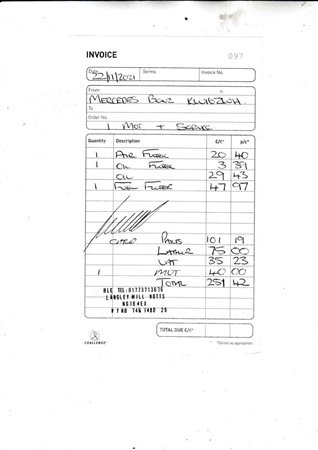 INVOICE
097
Date 22/11/2021 Terms Invoice No.
From
MERCEDES BENZ
To
Order No.
1 MOT + SERVICE
Quantity Description £/€* p/c*
1 AIR FILTER 20 40
1 OIL FILTER 3 39
OIL 29 43
1 FUEL FILTER 47 97
PARTS 101 19
LABOUR 75 00
VAT 35 23
1 MOT 40 00
TOTAL 251 42
TEL:01773713636
LANGLEY MILL NOTTS
NG164EX
TOTAL DUE £/€*
CHALLENGE
*Delete as appropriate